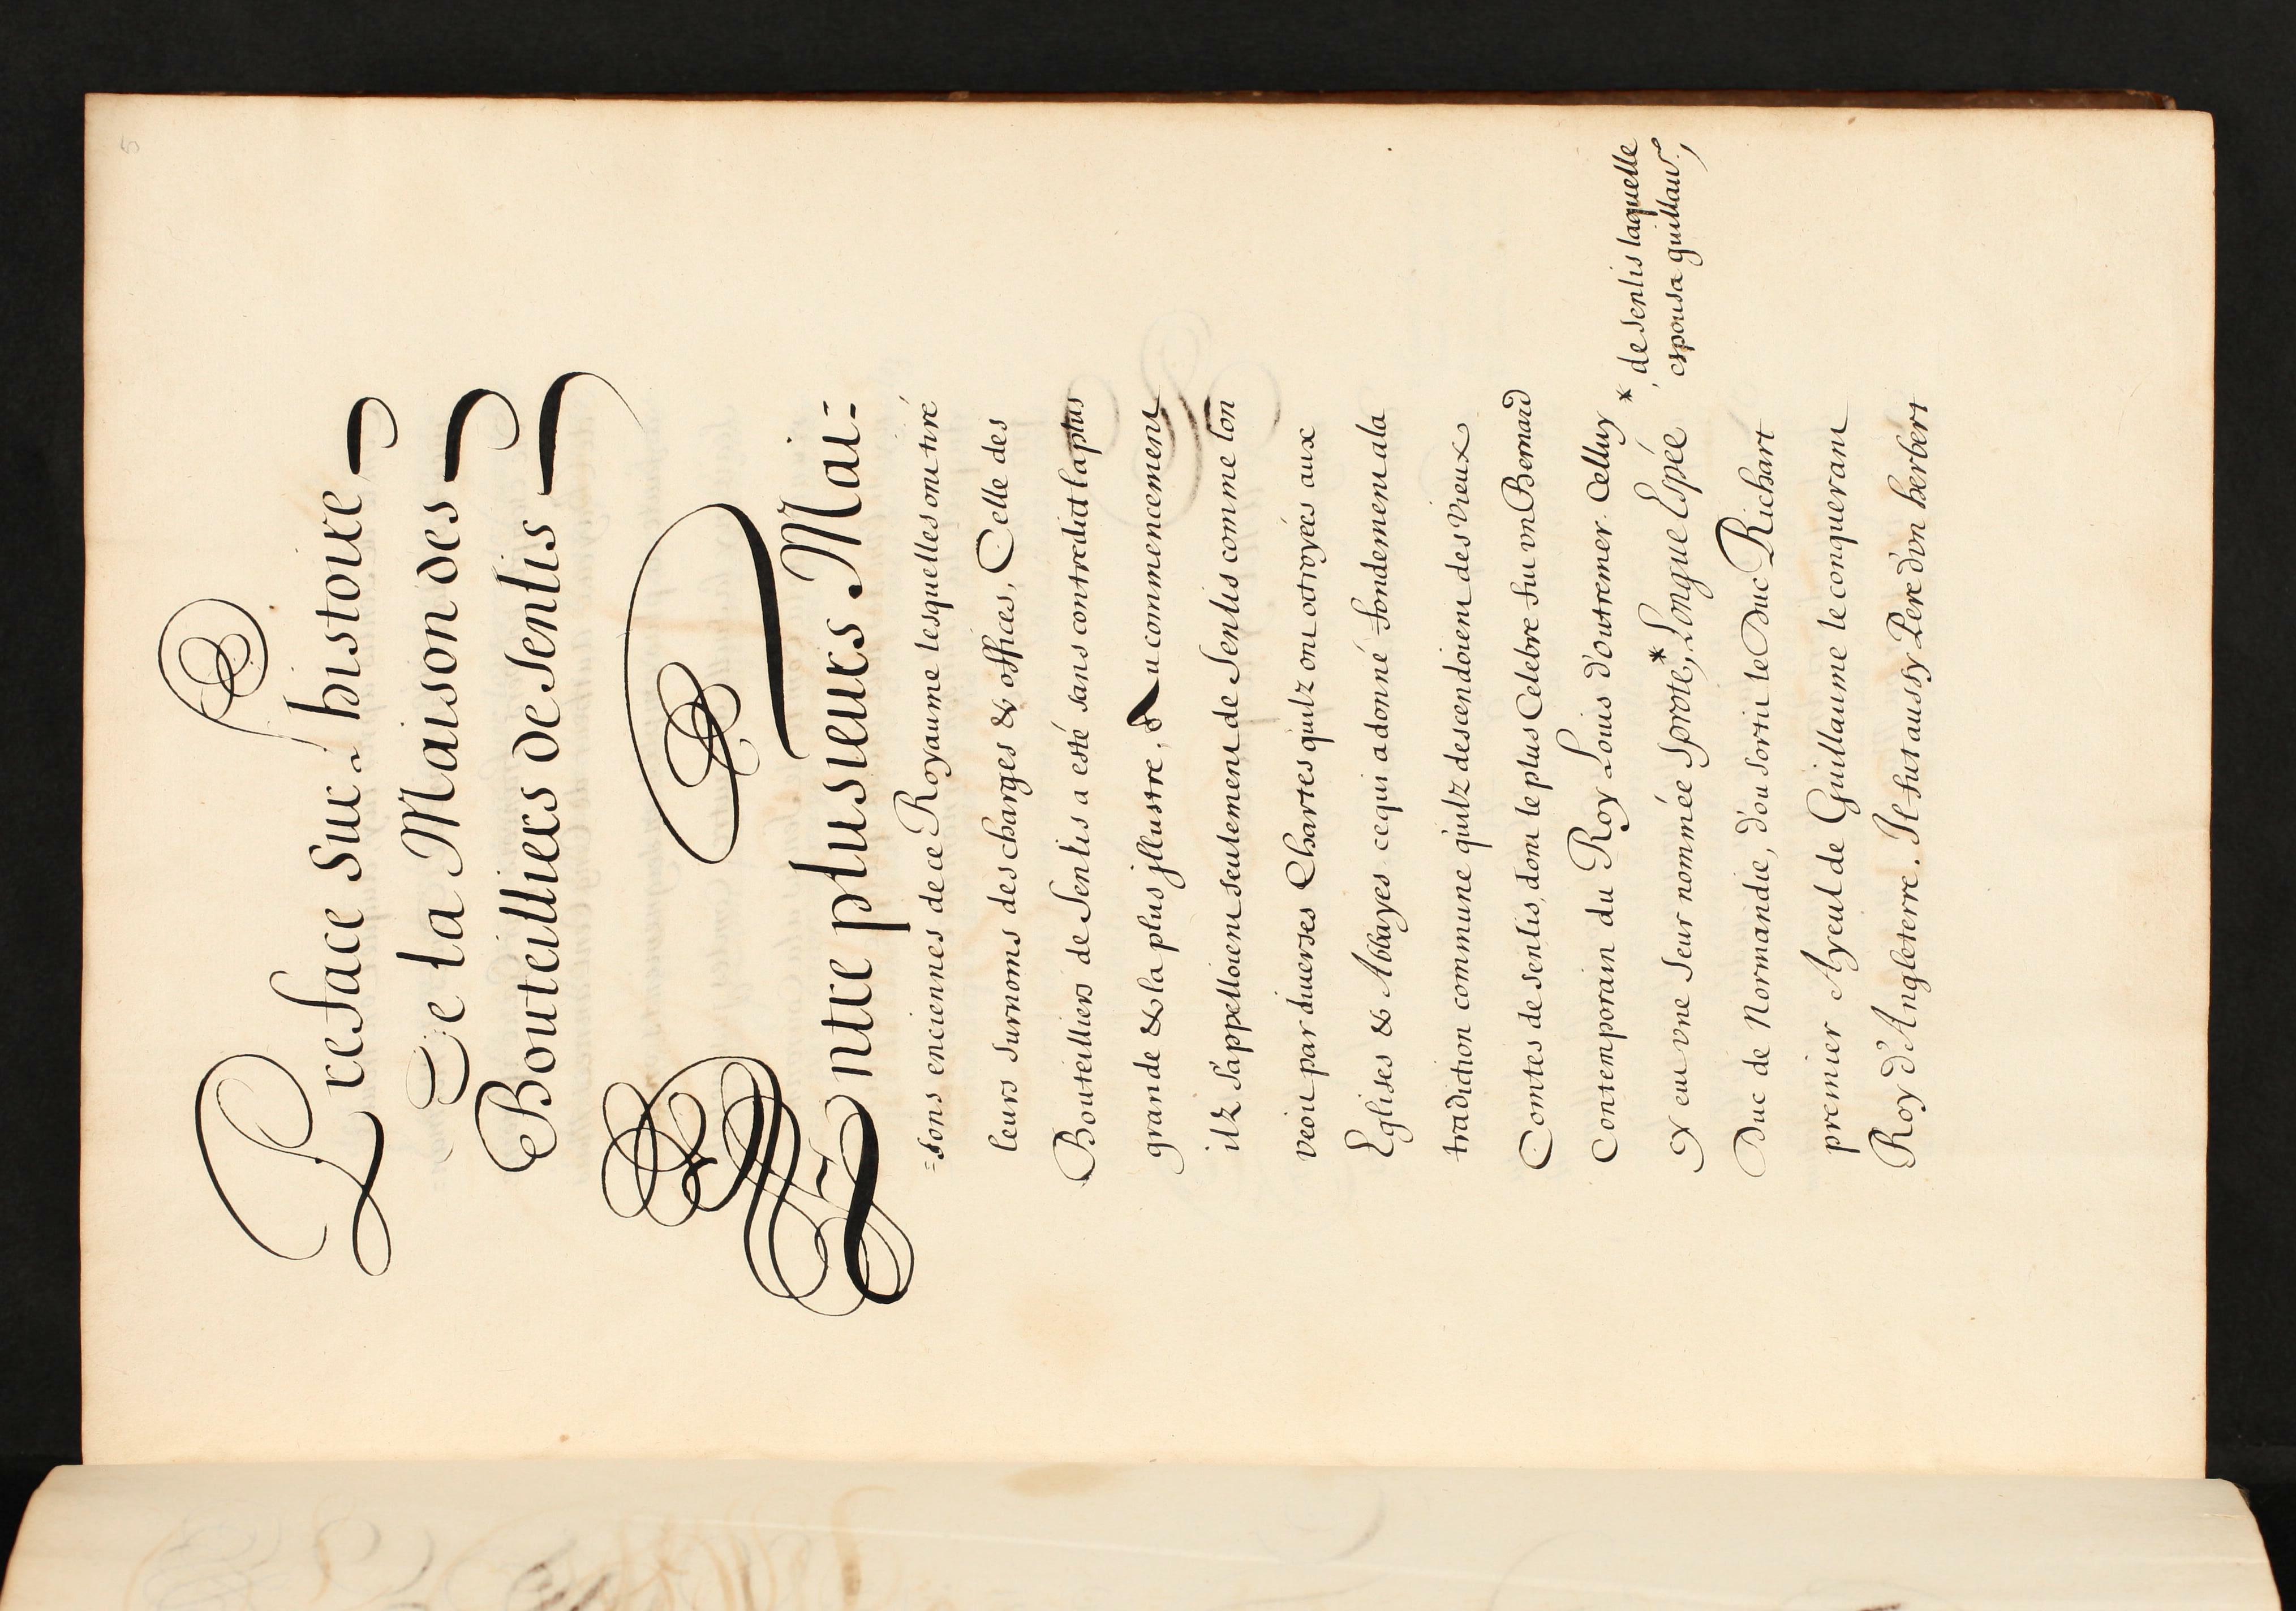 5
Preface sur l'histoire
De la Maison des
Bouteilliers de Senlis
Entre plusieurs Mai=
=sons enciennes de ce Royaume lesquelles ont tiré
leurs surnoms des charges & offices, Celle des
Bouteilliers de Senlis a esté sans contredict la plus
grande & la plus jllustre, Au commencement
ilz s'appelloient seulement de Senlis comme lon
veoit par diuerses Chartes quilz ont octroyées aux
Eglises & Abbayes ce qui a donné fondement a la
tradiction commune q'uilz descendoient des vieux
Comtes de Senlis, dont le plus Celebre fut vn Bernard
Contemporain du Roy Louis d'outremer. Celluy
Cy eut vne seur nommée Sprote,* Longue Espée
* de Senlis laquelle
espousa guillau.,
Duc de Normandie, d'ou sortit le Duc Richart
premier Ayeul de Guillaume le conquerant
Roy d'Angleterre. Il fut aussy Pere d'vn herbert